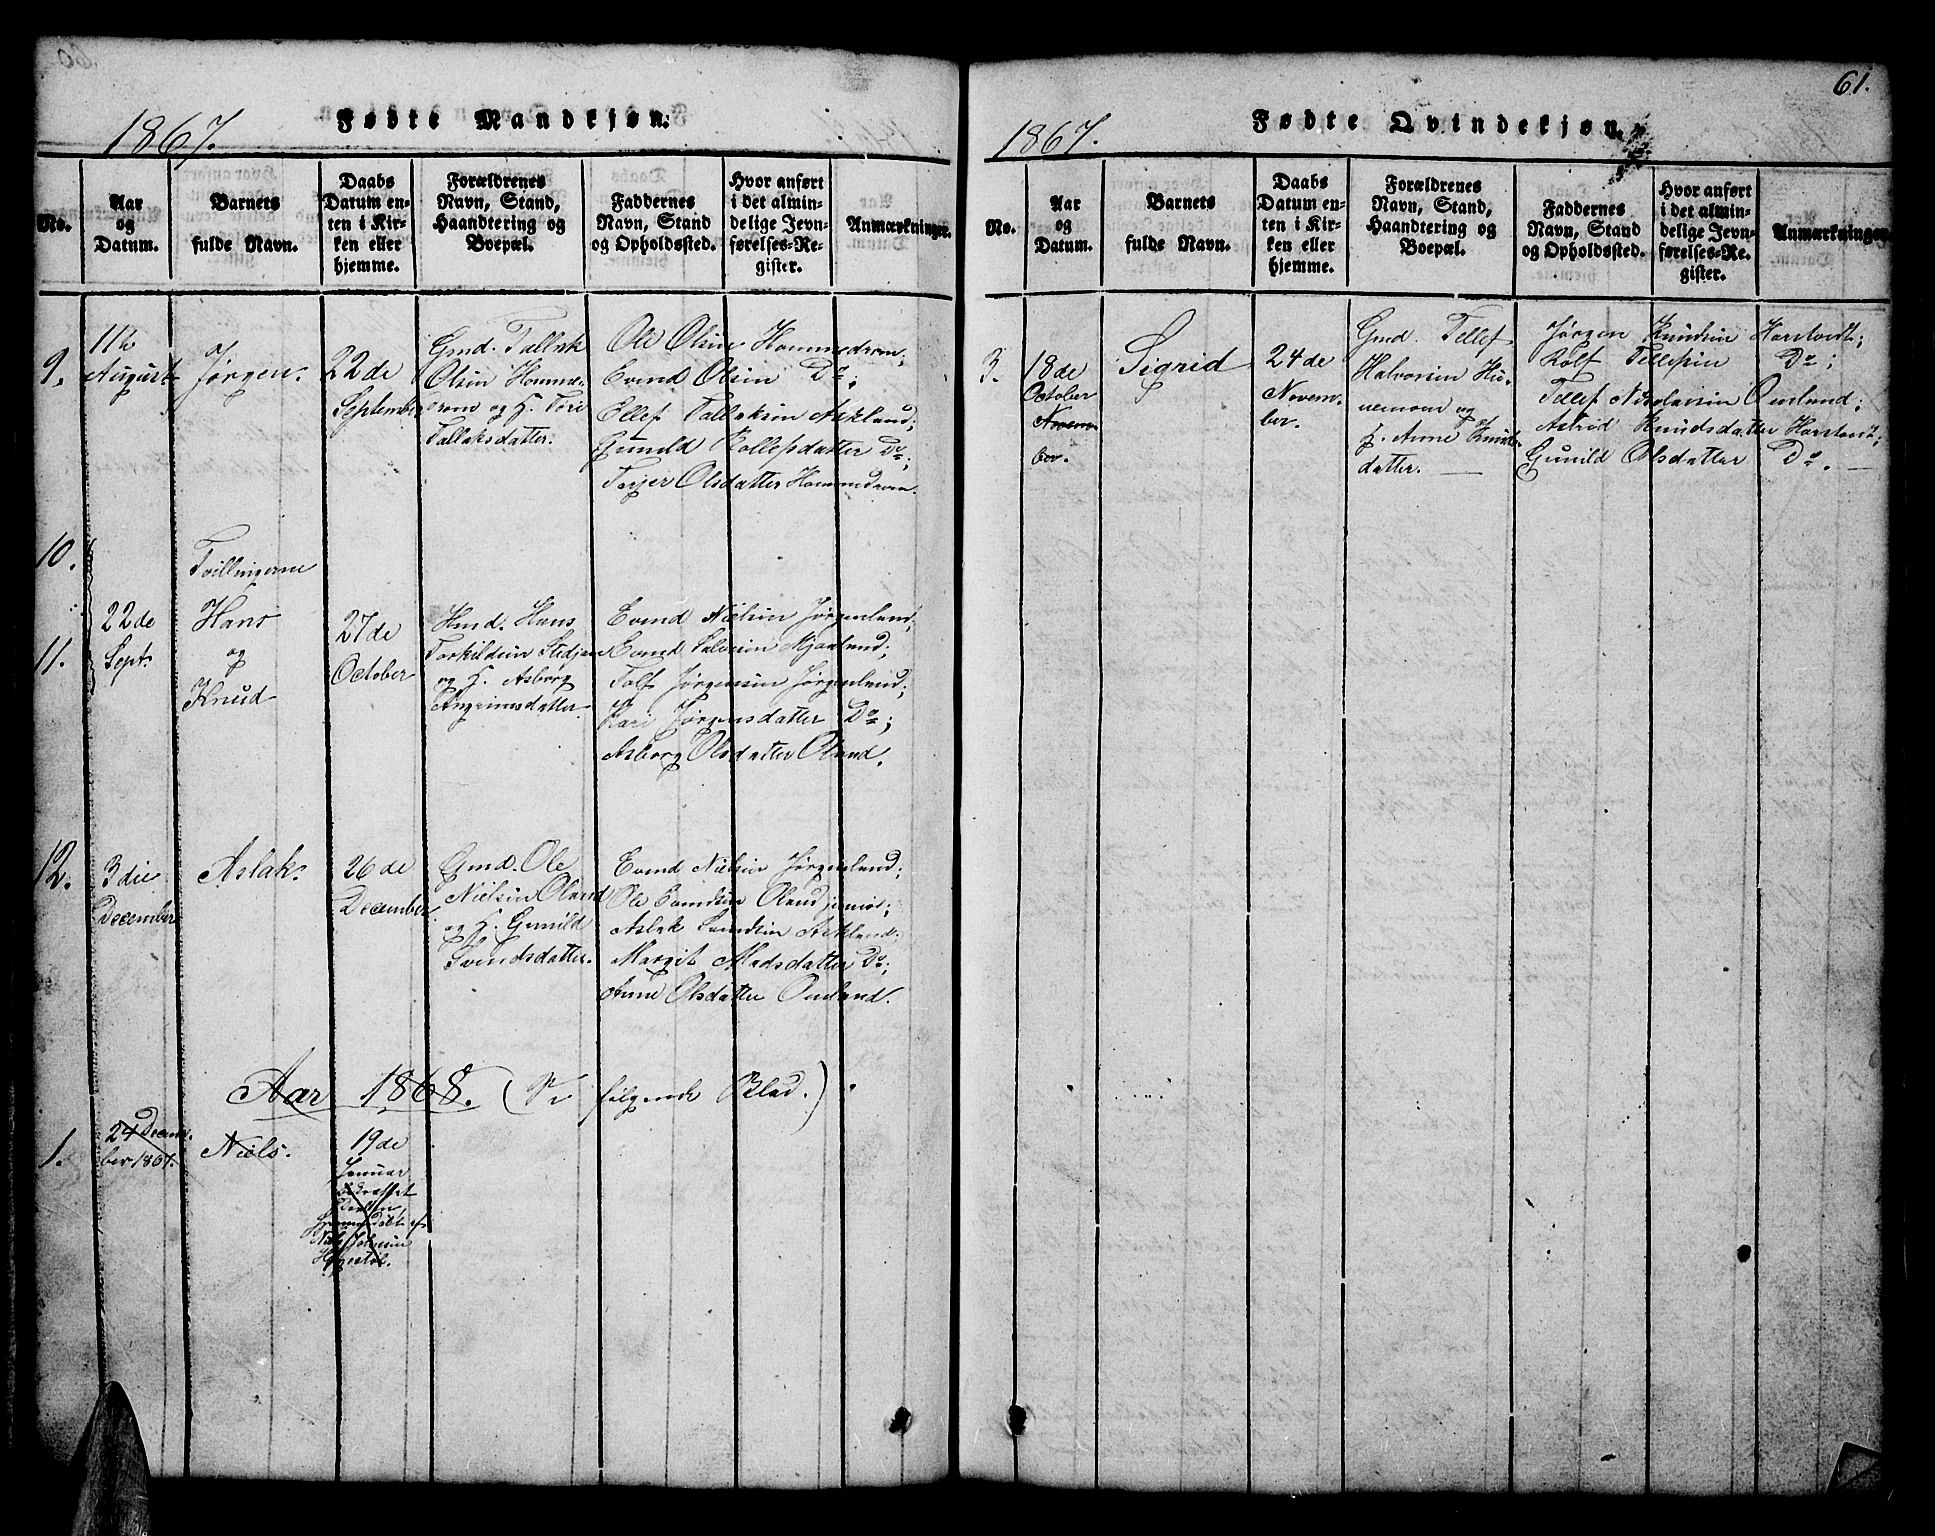 61.
1867. Fødte Mandkjøn.
No.
Aar
og
Datum.
Barnets
fulde Navn.
Daabs
Datum en-
ten i Kir-
ken eller
hjemme.
Forældrenes
Navn, Stand,
Haandtering og
Boepæl.
Faddernes
Navn, Stand
og Opholdssted.
Hvor anført
i det almin-
delige Jevn-
førelses-Re-
gister.
Anmærkninger.
9.
11te
August
Jørgen.
22de
September
Gmd. Tallak
Olsen Homme-
drom og K. Tore
Tallaksdatter.
Ole Olsen Hommedrom;
Evend Olsen Do;
Ellef Tallaksen Askland;
Gunild Rollefsdatter Do;
Terjer Olsdatter Hommedrom.
10.
11.
22de
Sept.
Tvillingerne
Hans
og
Knud
27de
October
Hmd. Hans
Torkildsen Stedjan
og K. Asborg
Angrimsdatter.
Evend Nielsen Jørgenland;
Evend Salvesen Mjaaland;
Tolf Jørgensen Jørgenland;
Kari Jørgensdatter Do;
Asborg Olsdatter Oland.
12.
3die
December
Aslak.
26de
December
Gmd. Ole
Nielsen Oland
og K. Gunild
Svendsdatter.
Evend Nielsen Jørgenland;
Ole Evendsen Oland junior;
Aslak Evendsen Askland;
Margit Madsdatter Do;
Anne Olsdatter Omland.
Aar 1868. (Se følgende Blad.)
1.
24 Decem-
ber 1867.
Niels.
19de
Januar
1867. Fødte Qvindekjøn.
No.
Aar
og
Datum.
Barnets
fulde Navn.
Daabs
Datum en-
ten i Kir-
ken eller
hjemme.
Forældrenes
Navn, Stand,
Haandtering og
Boepæl.
Faddernes
Navn, Stand
og Opholdssted.
Hvor anført
i det almin-
delige Jevn-
førelses-Re-
gister.
Anmærkninger
3.
18de
October
Novem-
ber.
Sigrid
24de
Novem-
ber.
Gmd. Tellef
Halvorsen Hu-
nemoen og
K. Anne Knuds-
datter.
Jørgen Knudsen Harstvedt;
Rolf Tellefsen Do;
Tellef Nicolaisen Omland;
Astrid Knudsdatter Harstvedt;
Gunild Olsdatter Do.